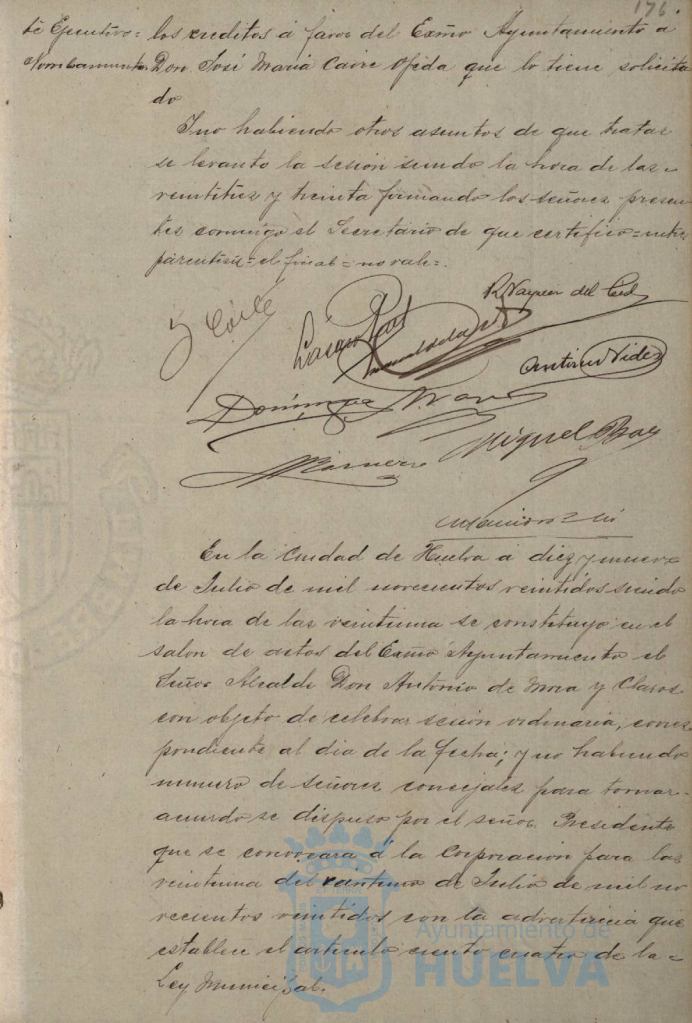 176
te Ejecutivo =
Nombramiento
los creditos á favor del Exmo Ayuntamiento a
Don José Maria Caire Ojeda que lo tiene solicita
do
Y no habiendo otros asuntos de que tratar
se levanto la sesion siendo la hora de las
veintitres y treinta firmando los señores presen
tes conmigo el Secretario de que certifico = entre
parentesis = el final = no vale =.
R Vazquez del Cid
Dominguez
Miguel Baez
En la Ciudad de Huelva a diez y nueve
de Julio de mil novecientos veintidos siendo
la hora de las veintiuna se constituyo en el
salon de actos del Exmo Ayuntamiento el
Señor Alcalde Don Antonio de Mora y Claros
con objeto de celebrar sesion ordinaria, corres
pondiente al dia de la fecha; y no habiendo
numero de señores concejales para tomar
acuerdo se dispuso por el señor Presidente
que se convocara á la Corporacion para las
veintiuna del de Julio de mil no
vecientos veintidos con la advertencia que
establece el articulo ciento cuatro de la
Ley Municipal.
Ayuntamiento de
HUELVA